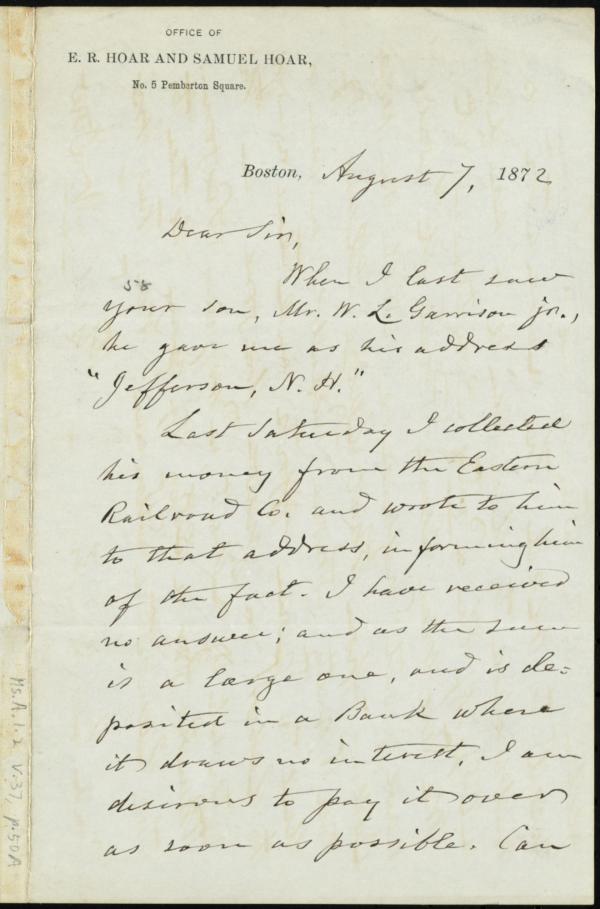 OFFICE OF
E. R. HOAR AND SAMUEL HOAR,
No. 5 Pemberton Square.
Boston, August 7, 1872
Dear Sir,
When I last saw
58
your son, Mr. W. L. Garrison jr.,
he gave me as his address
"Jefferson, N. H."
Last Saturday I collected
his money from the Eastern
Railroad Co. and wrote to him
to that address, informing him
of the fact. I have received
no answer; and as the sum
is a large one, and is de=
posited in a Bank where
it draws no interest, I am
desirous to pay it over
as soon as possible. Can
Ms.A.1.2 V.37, p.50A